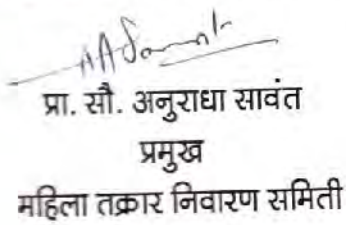 प्रा. सौ. अनुराधा सावंत
प्रमुख
महिला तक्रार निवारण समिती